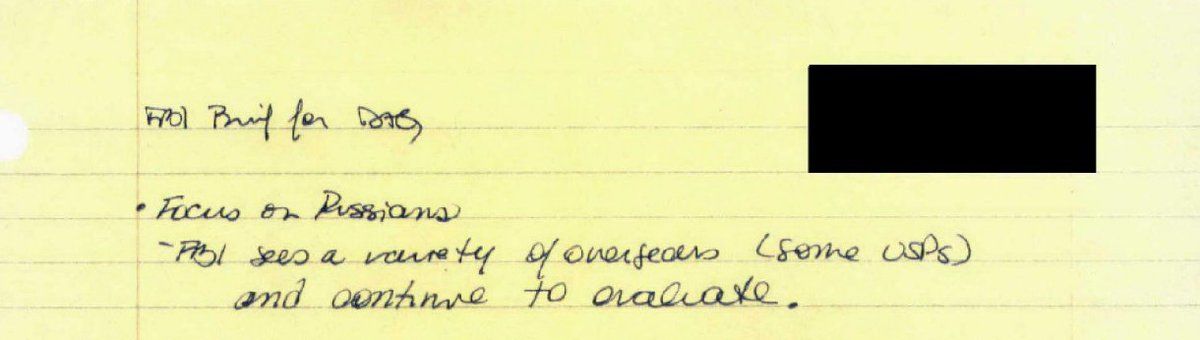 FBI Brief for DAG
• Focus on Russians
- FBI sees a variety of overseas (some USPs)
and continue to evaluate.